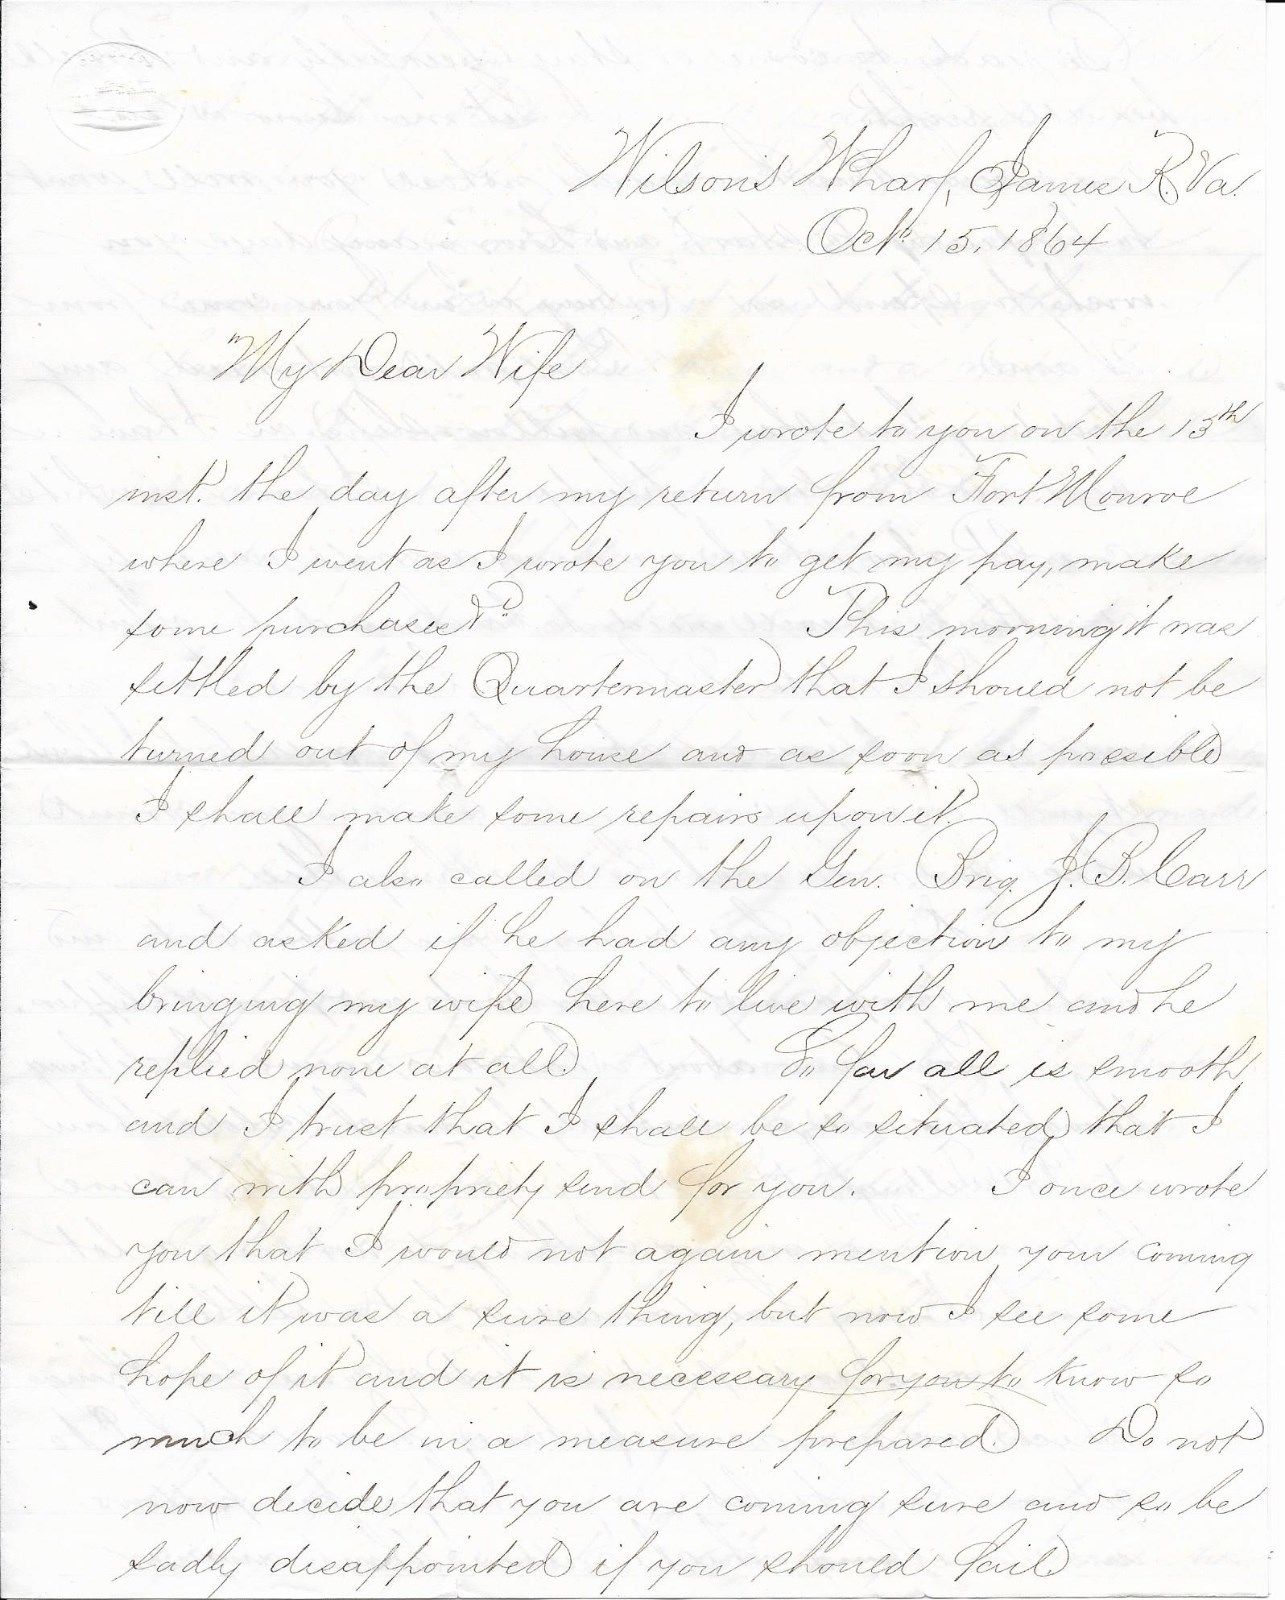 Wilson's Wharf, James R. Va.
Oct. 15, 1864
My Dear Wife
I wrote to you on the 13th
inst. the day after my return from Fort Monroe
where I went as I wrote you to get my pay, make
some purchases &c.     This morning it was
settled by the Quartermaster that I should not be
turned out of my house and as soon as possible
I shall make some repairs upon it
I also called on the Gen. Brig. J. B. Carr
and asked if he had any objection to my
bringing my wife here to live with me and he
replied none at all.     So far all is smooth
and I trust that I shall be so situated that I
can with propriety send for you.     I once wrote
you that I would not again mention your coming
till it was a sure thing, but now I see some
hope of it and it is necessary for you to know so
much to be in a measure prepared.   Do not
now decide that you are coming sure and so be
sadly disappointed if you should fail